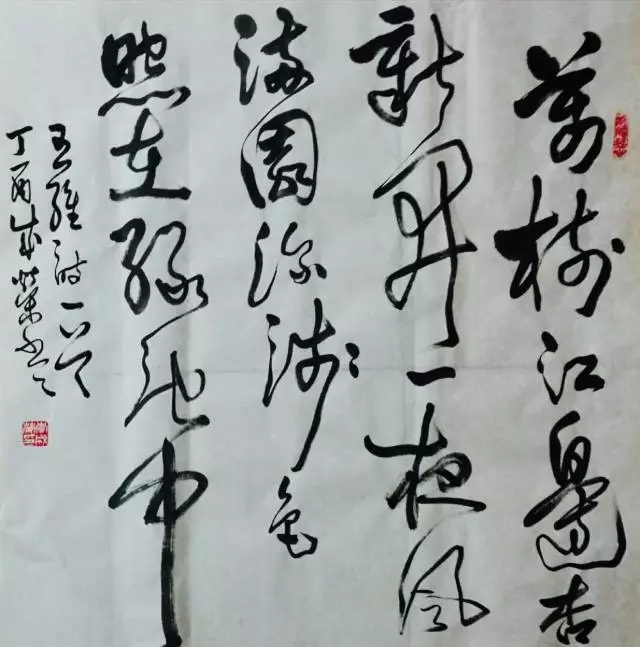 萬樹江邊杏
新開一夜風
滿園深淺色
照在綠波中
王維詩一首
丁酉歲